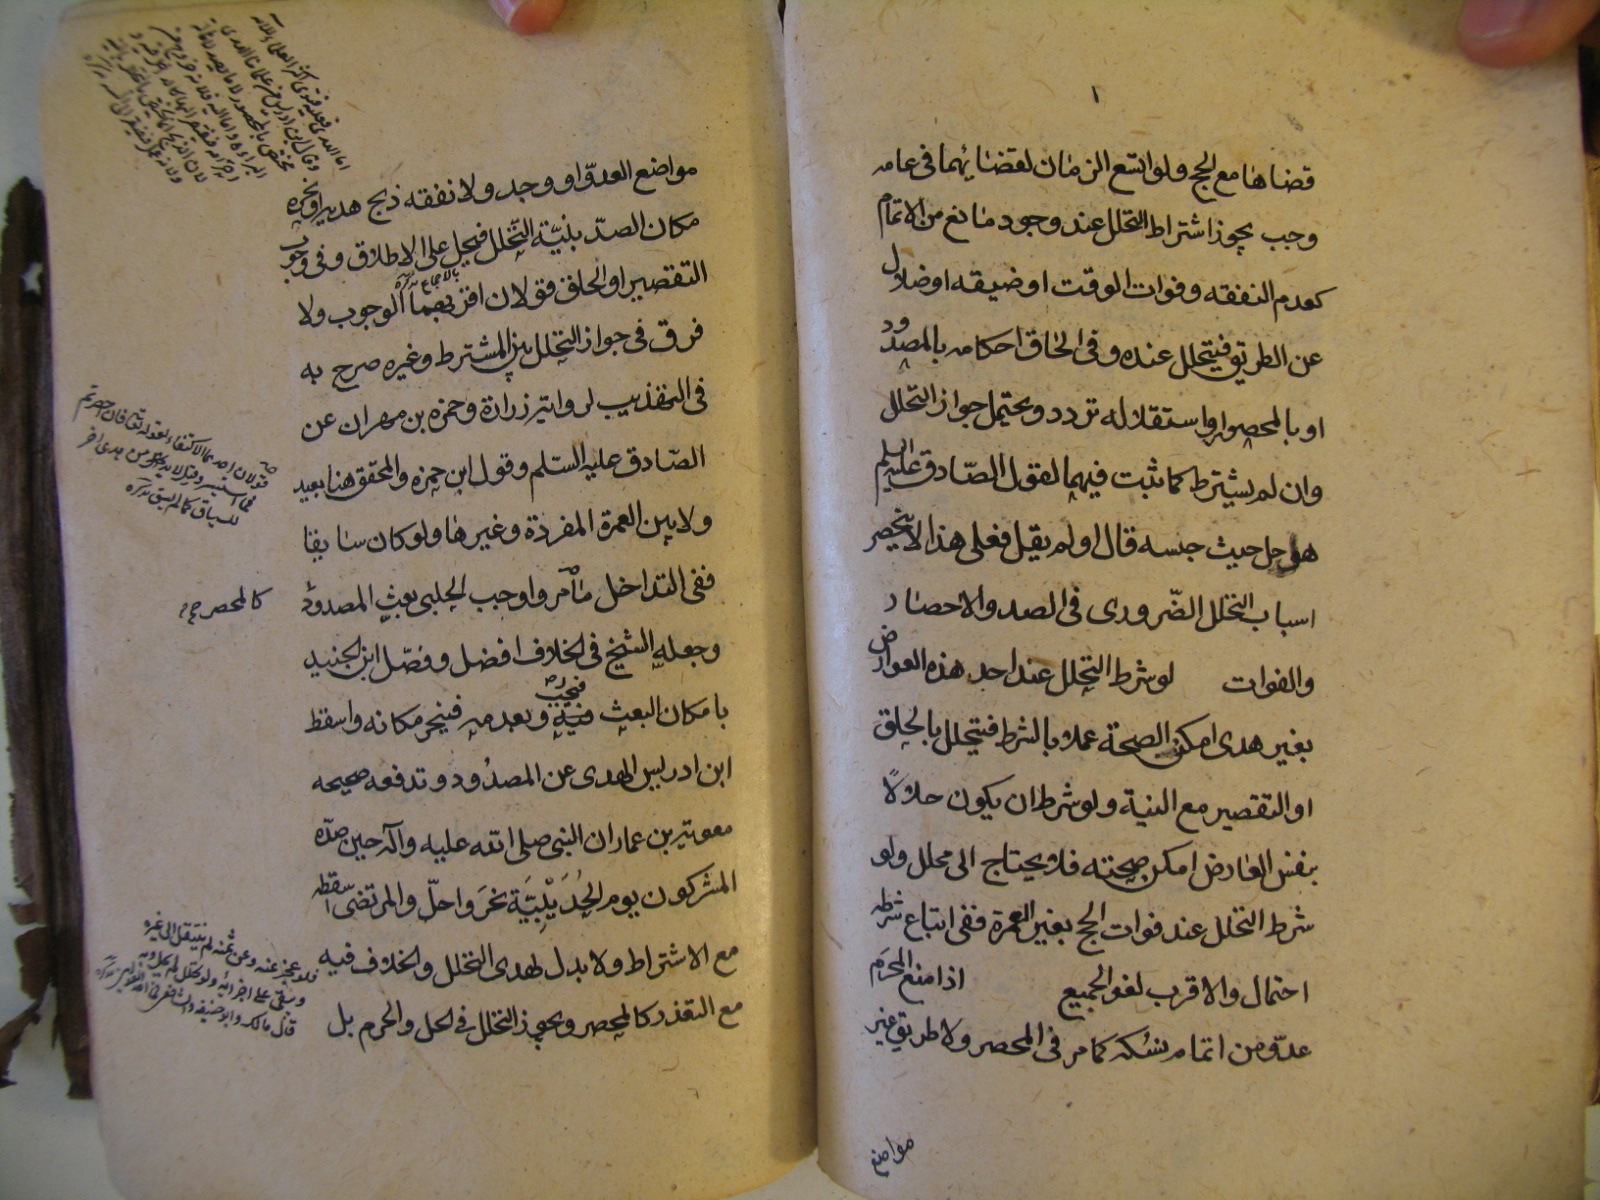 قضاها مع الحج ولو اتسع الزمان لقضائهما فى عامه
وجب يجوز اشتراط التحلل عند وجود مانع من الاتمام
كعدم النفقه وفوات الوقت او ضيقه او ضلال
عن الطريق فيتحلل عنده وفى الحاق احكامه بالمصدود
او بالمحصور او استقلاله تردد ويحتمل جواز التحلل
وان لم يشترط كما ثبت فيهما لقول الصّادق عليه السلم
هو حل حيث حبسه قال او لم يقل فعلى هذا لا ينحصر
اسباب التحلل الضّرورى فى الصد والاحصار
والفوات لو شرط التحلل عند احد هذه العوارض
بغير هدى امكن الصحة عملا بالشرط فيتحلل بالحلق
او التقصير مع النية ولو شرط ان يكون حلالاً
بنفس العارض امكن صحته فلا يحتاج الى محلل ولو
شرط التحلل عند فوات الحج بغير العمرة ففى اتباع شرطه
احتمال والاقرب لغو الجميع اذا منع المحرم
عدّو من اتمام نسكه كما مر فى المحصر ولا طريق غير
مواضع
مواضع العدوّ او وجد ولا نفقه ذبح هديه او نحره
مكان الصدّ بنيّة التّحلل فيحل على الاطلاق وفى وجوب
التقصير او الحلق قولان اقربهما الوجوب ولا
فرق فى جواز التحلل بين المشترط وغيره صرح به
فى التهذيب لروايتى زرارة وحمزه بن حمران عن
الصّادق عليه السّلم وقول ابن حمزه والمحقق هنا بعيد
ولا بين العمرة المفردة وغيرها ولو كان سابقا
ففى التداخل ما مر واوجب الحلبى بعث المصدود
كالمحصر
وجعله الشيخ فى الخلاف افضل وفصّل ابن الجنيد
بامكان البعث فيجب وبعدمه فينحر مكانه واسقط
ابن ادريس الهدى عن المصدود وتدفعه صحيحه
معويه بن عمار ان النبى صلى الله عليه وآله حين صدّه
المشركون يوم الحُدَيْبِيَّة نحَرَ واحلّ والمرتضى اسقطه
مع الاشتراط ولا بدل لهدى التحلل والخلاف فيه
فلو عجز عنه وعن ثمنه لم ينتقل الى غيره
مع القدر كالمحصر ويجوز التحلل فى الحل والحرم بل